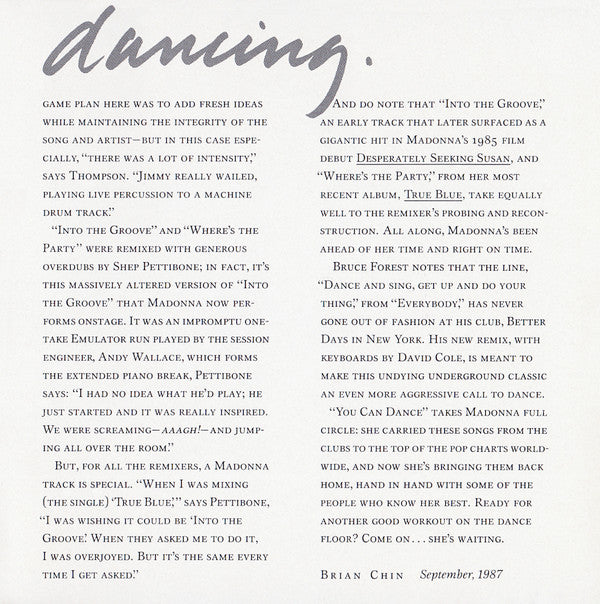 dancing.
GAME PLAN HERE WAS TO ADD FRESH IDEAS
WHILE MAINTAINING THE INTEGRITY OF THE
SONG AND ARTIST—BUT IN THIS CASE ESPE-
CIALLY, “THERE WAS A LOT OF INTENSITY,”
SAYS THOMPSON. “JIMMY REALLY WAILED,
PLAYING LIVE PERCUSSION TO A MACHINE
DRUM TRACK.”
“INTO THE GROOVE” AND “WHERE’S THE
PARTY” WERE REMIXED WITH GENEROUS
OVERDUBS BY SHEP PETTIBONE; IN FACT, IT’S
THIS MASSIVELY ALTERED VERSION OF “INTO
THE GROOVE” THAT MADONNA NOW PER-
FORMS ONSTAGE. IT WAS AN IMPROMPTU ONE-
TAKE EMULATOR RUN PLAYED BY THE SESSION
ENGINEER, ANDY WALLACE, WHICH FORMS
THE EXTENDED PIANO BREAK, PETTIBONE
SAYS: “I HAD NO IDEA WHAT HE’D PLAY; HE
JUST STARTED AND IT WAS REALLY INSPIRED.
WE WERE SCREAMING—AAAGH!—AND JUMP-
ING ALL OVER THE ROOM.”
BUT, FOR ALL THE REMIXERS, A MADONNA
TRACK IS SPECIAL. “WHEN I WAS MIXING
(THE SINGLE) ‘TRUE BLUE,’” SAYS PETTIBONE,
“I WAS WISHING IT COULD BE ‘INTO THE
GROOVE.’ WHEN THEY ASKED ME TO DO IT,
I WAS OVERJOYED. BUT IT’S THE SAME EVERY
TIME I GET ASKED.”
AND DO NOTE THAT “INTO THE GROOVE,”
AN EARLY TRACK THAT LATER SURFACED AS A
GIGANTIC HIT IN MADONNA’S 1985 FILM
DEBUT DESPERATELY SEEKING SUSAN, AND
“WHERE’S THE PARTY,” FROM HER MOST
RECENT ALBUM, TRUE BLUE, TAKE EQUALLY
WELL TO THE REMIXER’S PROBING AND RECON-
STRUCTION. ALL ALONG, MADONNA’S BEEN
AHEAD OF HER TIME AND RIGHT ON TIME.
BRUCE FOREST NOTES THAT THE LINE,
“DANCE AND SING, GET UP AND DO YOUR
THING,” FROM “EVERYBODY,” HAS NEVER
GONE OUT OF FASHION AT HIS CLUB, BETTER
DAYS IN NEW YORK. HIS NEW REMIX, WITH
KEYBOARDS BY DAVID COLE, IS MEANT TO
MAKE THIS UNDYING UNDERGROUND CLASSIC
AN EVEN MORE AGGRESSIVE CALL TO DANCE.
“YOU CAN DANCE” TAKES MADONNA FULL
CIRCLE: SHE CARRIED THESE SONGS FROM THE
CLUBS TO THE TOP OF THE POP CHARTS WORLD-
WIDE, AND NOW SHE’S BRINGING THEM BACK
HOME, HAND IN HAND WITH SOME OF THE
PEOPLE WHO KNOW HER BEST. READY FOR
ANOTHER GOOD WORKOUT ON THE DANCE
FLOOR? COME ON...SHE’S WAITING.
BRIAN CHIN September, 1987